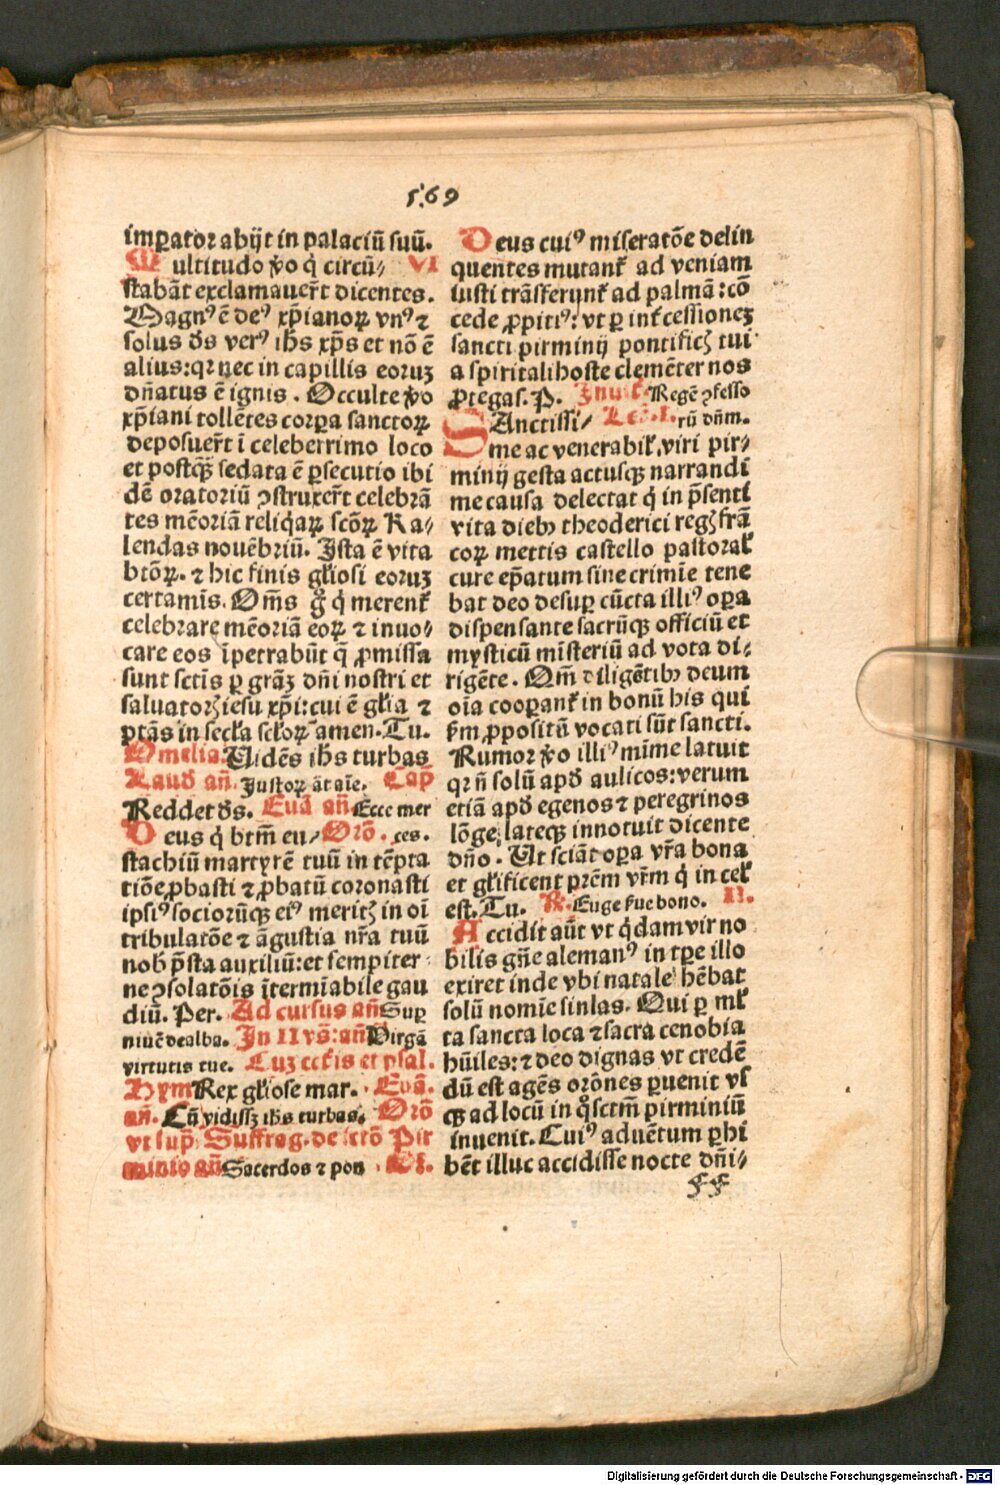 569
imꝑator abijt in palaciū suū.
Multitudo ꝟo q̇ circū⸗ VI
stabāt exclamauer̄t dicentes.
Magnꝰ ē deꝰ xp̄ianoꝝ vnꝰ ⁊
solus d̄s verꝰ ih̄s xp̄s et nō ē
alius: qr nec in capillis eoruꝫ
dn̄atus ē ignis. Occulte ꝟo
xp̄iani tollētes corꝑa sanctoꝝ
deposuer̄t ī celeberrimo loco
et postq̄ꝫ sedata ē ꝑsecutio ibi
dē oratoriū ꝯstruxer̄t celebrā
tes mēoriā reliq̇aꝝ scōꝝ Ka⸗
lendas nouēbriū. Ista ē vita
btōꝝ. ⁊ hic finis gl̓iosi eoruꝫ
certamīs. Om̄s gͦ q̇ merent᷑
celebrare mēoriā eoꝝ ⁊ inuo⸗
care eos īpetrabūt q̄ ꝓmissa
sunt sctīs ꝑ grāꝫ dn̄i nostri et
saluatorꝭ iesu xp̄i: cui ē gl̓ia ⁊
ptās in secl̓a scl̓oꝝ amen. Tu.
Omelia. Uidēs ih̄s turbas
Laud̓ an̄. Iustoꝝ āt aīe. Cap̄
Reddet d̄s. Euā an̄ Ecce mer
Deus q̇ btm̄ eu⸗ Orō. ces.
stachiū martyrē tuū in tēpta
tiōe ꝓbasti ⁊ ꝓbatū coronasti
ipsiꝰ sociorūqꝫ eiꝰ meritꝭ in oī
tribulatōe ⁊ āgustia nr̄a tuū
nob̓ p̄sta auxiliū: et sempiter
ne ꝯsolatōis ītermīabile gau
diū. Per. Ad cursus an̄ Suꝑ
niuē dealba. In II vs̄: an̄ Virgā
virtutis tue. Luꝫ cc̄tis et psal.
Hym Rex gl̓iose mar. Euā.
an̄. Cū vidissꝫ ih̄s turbas. Orō
vt sup̄. Suffrag. de sctō Pir
minio an̄ Sacerdos ⁊ pon Ps.
Deus cuiꝰ miseratōe delin
quentes mutant᷑ ad veniam
iusti trāsferūnt᷑ ad palmā: cō
cede ꝓpitiꝰ: vt ꝑ int᷑cessioneꝫ
sancti pirminij pontificꝭ tui
a spiritali hoste clemēter nos
ꝓtegas. P. Inuit. Regē ꝯfesso
SAnctissi⸗ Lec̄. I. rū dn̄m.
me ac venerabil̓. viri pir⸗
minij gesta actusqꝫ narrandi
me causa delectat q̇ in p̄senti
vita diebꝫ theoderici regꝭ frā
coꝝ mettis castello pastoral̓
cure ep̄atum sine crimīe tene
bat deo desuꝑ cūcta illiꝰ oꝑa
dispensante sacrūqꝫ officiū et
mysticū mīsteriū ad vota di⸗
rigēte. Qm̄ diligētibꝫ deum
oīa cooꝑant᷑ in bonū his qui
s̄m ꝓpositū vocati sūt sancti.
Rumor ꝟo illiꝰ mīme latuit
qr n̄ solū apd̓ aulicos: verum
etiā apd̓ egenos ⁊ peregrinos
lōge lateqꝫ innotuit dicente
dn̄o. Ut sciāt oꝑa vr̄a bona
et gl̓ificent pr̄em vr̄m q̇ in cel̓
est. Tu. ℟. Euge sue bono. II.
Accidit aūt vt q̇dam vir no
bilis gn̄e alemanꝰ in tꝑe illo
exiret inde vbi natale hēbat
solū nomīe sinlas. Qui ꝑ ml̓
ta sancta loca ⁊ sacra cenobia
hūiles: ⁊ deo dignas vt credē
dū est agēs orōnes ꝑuenit vs
qꝫ ad locū in q̊ sctm̄ pirminiū
inuenit. Cuiꝰ aduētum ꝑhi
bēt illuc accidisse nocte dn̄i⸗
FF
Digitalisierung gefördert durch die Deutsche Forschungsgemeinschaft - DFG